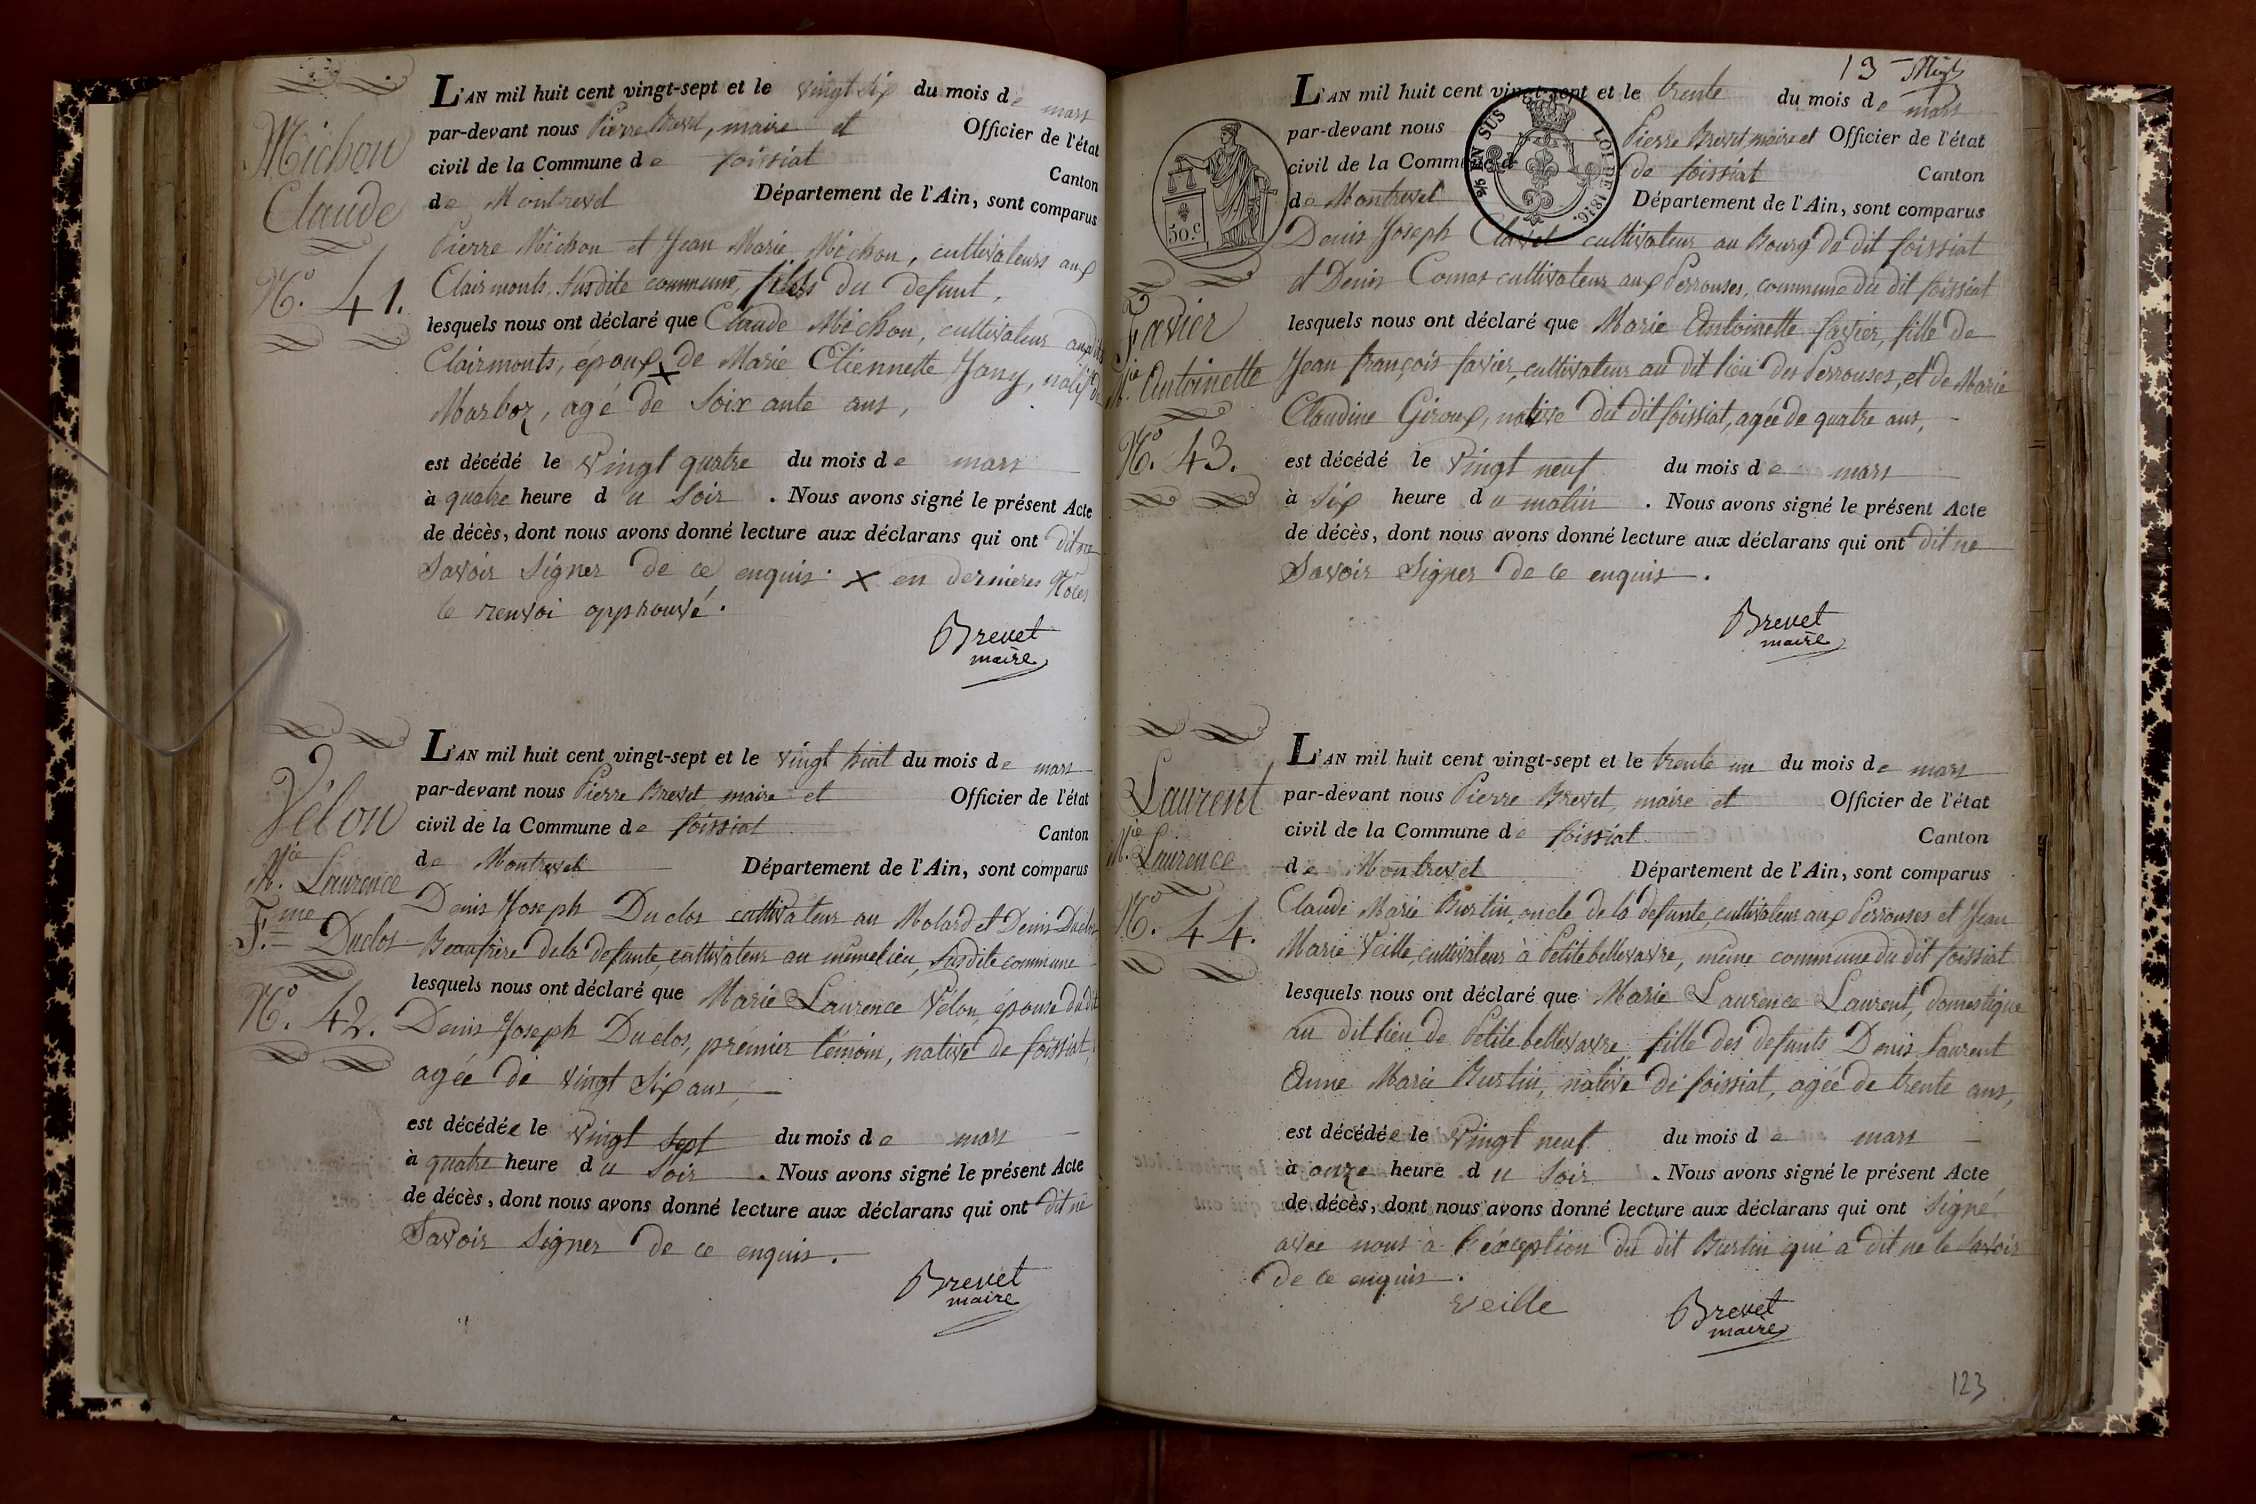 Michon
Claude
N.o 41.
L'AN mil huit cent vingt-sept et le vingt six du mois de mars
par-devant nous Pierre Brevet, maire et Officier de l'état
civil de la Commune de foissiat Canton
de Montrevel Département de l'Ain, sont comparus
Pierre Michon et Jean Marie Michon, cultivateurs aux
Clairmonts, susdite commune, fils du defunt,
lesquels nous ont déclaré que Claude Michon, cultivateur aux dits
Clairmonts, époux x de Marie Etiennette Jany, natif de
Marboz, agé de Soixante ans,
est décédé le vingt quatre du mois de mars
à quatre heure du Soir . Nous avons signé le présent Acte
de décès, dont nous avons donné lecture aux déclarans qui ont dit ne
Savoir Signer de ce enquis. x en dernieres Noces
le renvoi approuvé.
Brevet
maire
Vélon
M.ie Laurence
F.me Duclos
N.o 42.
L'AN mil huit cent vingt-sept et le vingt huit du mois de mars
par-devant nous Pierre Brevet maire et Officier de l'état
civil de la Commune de foissiat Canton
de Montrevel Département de l'Ain, sont comparus
Denis Joseph Duclos cultivateur au Molard et Denis Duclos
Beaufrère de la defunte, cultivateur au même lieu, susdite commune
lesquels nous ont déclaré que Marie Laurence Vélon, épouse du dit
Denis Joseph Duclos, prémier témoin, native de foissiat,
agée de vingt Six ans,
est décédée le vingt sept du mois de mars
à quatre heure du Soir . Nous avons signé le présent Acte
de décès, dont nous avons donné lecture aux déclarans qui ont dit ne
Savoir Signer de ce enquis.
Brevet
maire
13
50.c
EN SUS
LOI DE 1816.
Favier
M.ie Antoinette
N.o 43.
L'AN mil huit cent vingt-sept et le trente du mois de mars
par-devant nous Pierre Brevet, maire et Officier de l'état
civil de la Commune de foissiat Canton
de Montrevel Département de l'Ain, sont comparus
Denis Joseph Clavel cultivateur au Bourg du dit foissiat
et Denis Comas cultivateur aux Perrouses, commune du dit foissiat
lesquels nous ont déclaré que Marie Antoinette favier, fille de
Jean françois favier, cultivateur au dit lieu des Perrouses, et de Marie
Claudine Giroux, native du dit foissiat, agée de quatre ans,
est décédé le vingt neuf du mois de mars
à six heure du matin . Nous avons signé le présent Acte
de décès, dont nous avons donné lecture aux déclarans qui ont dit ne
Savoir Signer de ce enquis.
Brevet
maire
Laurent
M.ie Laurence
N.o 44.
L'AN mil huit cent vingt-sept et le trente un du mois de mars
par-devant nous Pierre Brevet, maire et Officier de l'état
civil de la Commune de foissiat Canton
de Montrevel Département de l'Ain, sont comparus
Claude Marie Burtin, oncle de la defunte, cultivateur aux Perrouses et Jean
Marie Veille, cultivateur à Petite bellevavre, même commune du dit foissiat
lesquels nous ont déclaré que Marie Laurence Laurent, domestique
au dit lieu de Petite bellevavre fille des defunts Denis Laurent
Anne Marie Burtin, native de foissiat, agée de trente ans,
est décédée le vingt neuf du mois de mars
à onze heure du Soir . Nous avons signé le présent Acte
de décès, dont nous avons donné lecture aux déclarans qui ont signé
avec nous à l'éxception du dit Burtin qui a dit ne le savoir
de ce enquis.
Veille
Brevet
maire
123